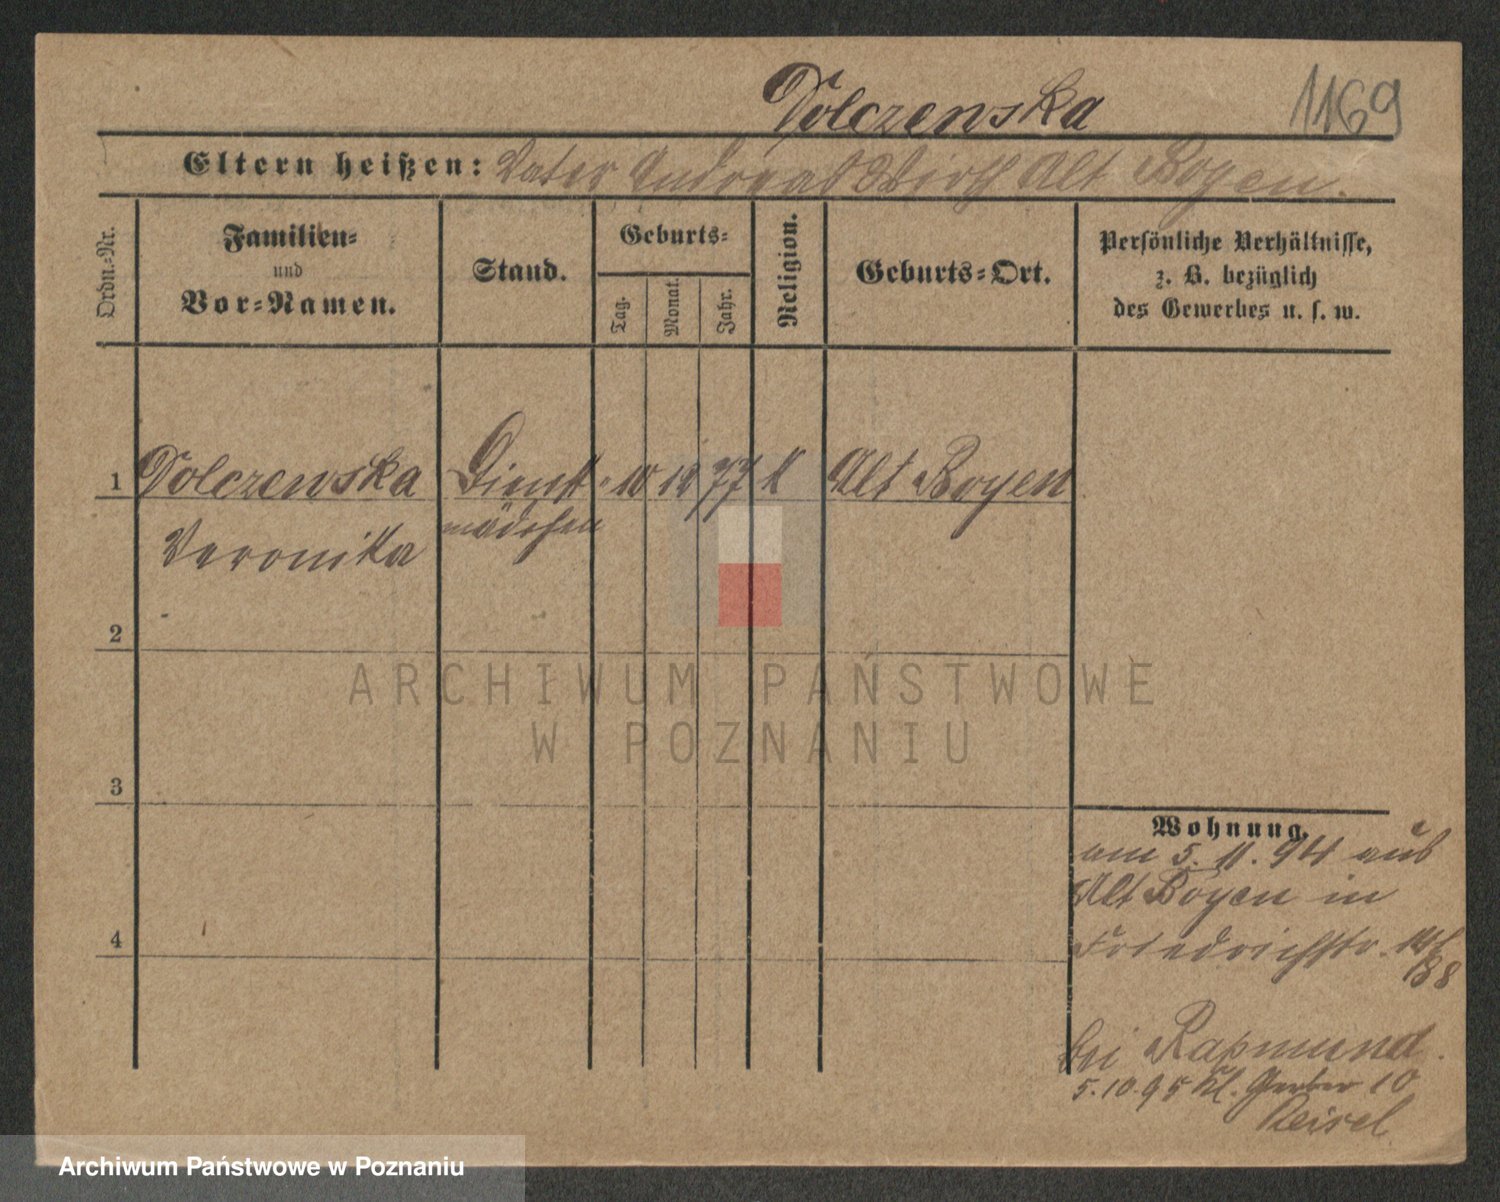 Dolczenska 1169
Eltern heißen: Vater Andreas Wirth Alt Boyen.
Ordn.-Nr.
Familien-
und
Vor-Namen.
Stand.
Geburts-
Tag.
Monat.
Jahr.
Religion.
Geburts-Ort.
Persönliche Verhältnisse,
z. B. bezüglich
des Gewerbes u. s. w.
1 Dolczenska Dienst- 10 12 77 k Alt Boyen
Veronika mädchen
2
3
4
Wohnung.
am 5. 11. 94 aus
Alt Boyen in
Friedrichstr.
bei Rapmund.
5.10.95 Kl. Gerber 10
Reisel
ARCHIWUM PAŃSTWOWE
W POZNANIU
Archiwum Państwowe w Poznaniu